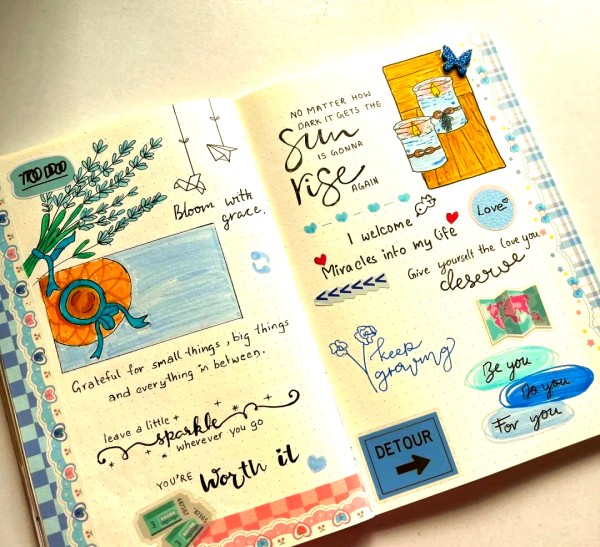 TOO DOO
Bloom with
grace.
Grateful for small things, big things
and everything in between.
leave a little
sparkle
wherever you go
YOU'RE Worth it
NO MATTER HOW
DARK IT GETS THE
Sun
IS GONNA
rise
AGAIN
I welcome
Miracles into my life
Love
Give yourself the love you
deserve
keep
growing
Be you
Do you
For you
DETOUR